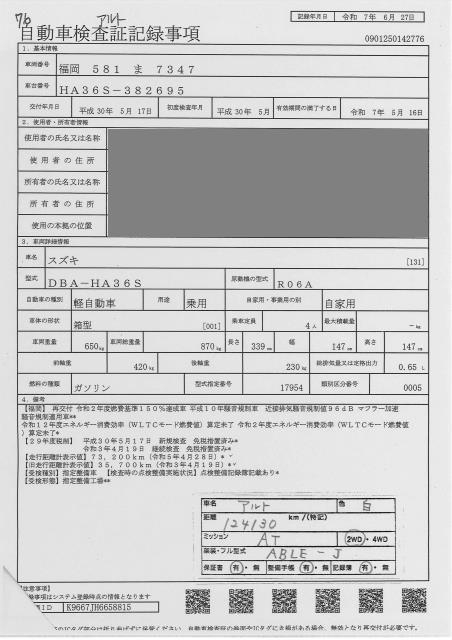 76 アルト
記録年月日 令和 7年 6月 27日
自動車検査証記録事項
0901250142776
1. 基本情報
車両番号 福岡 581 ま 7347
車台番号 HA36S-382695
交付年月日 平成 30年 5月 17日 初度検査年月 平成 30年 5月 有効期間の満了する日 令和 7年 5月 16日
2. 使用者・所有者情報
使用者の氏名又は名称
使用者の住所
所有者の氏名又は名称
所有者の住所
使用の本拠の位置
3. 車両詳細情報
車名 スズキ [131]
型式 DBA-HA36S 原動機の型式 R06A
自動車の種別 軽自動車 用途 乗用 自家用・事業用の別 自家用
車体の形状 箱型 [001] 乗車定員 4人 最大積載量 -kg
車両重量 650kg 車両総重量 870kg 長さ 339cm 幅 147cm 高さ 147cm
前軸重 420kg 後軸重 230kg 総排気量又は定格出力 0.65 L
燃料の種類 ガソリン 型式指定番号 17954 類別区分番号 0005
4. 備考
【福岡】 再交付 令和2年度燃費基準150%達成車 平成10年騒音規制車 近接排気騒音規制値96dB マフラー加速
騒音規制適用車**
令和12年度エネルギー消費効率(WLTCモード燃費値)算定未了 令和2年度エネルギー消費効率(WLTCモード燃費値
)算定未了*
【29年度税制】 平成30年5月17日 新規検査 免税措置済み*
令和3年4月19日 継続検査 免税措置済み*
【走行距離計表示値】73,200km(令和5年4月28日)*
【旧走行距離計表示値】35,700km(令和3年4月19日)*
【受検種別】指定整備車 【検査時の点検整備実施状況】点検整備記録簿記載あり*
【受検形態】指定整備工場**
車名 アルト 色 白
距離 124130 km/(特記)
ミッション AT 2WD・4WD
架装・フル型式 ABLE-J
保証書 有・無 整備手帳 有・無 記録簿 有・無
注意事項】
記録事項はシステム登録時点の情報となります
ID K9667JH6658815